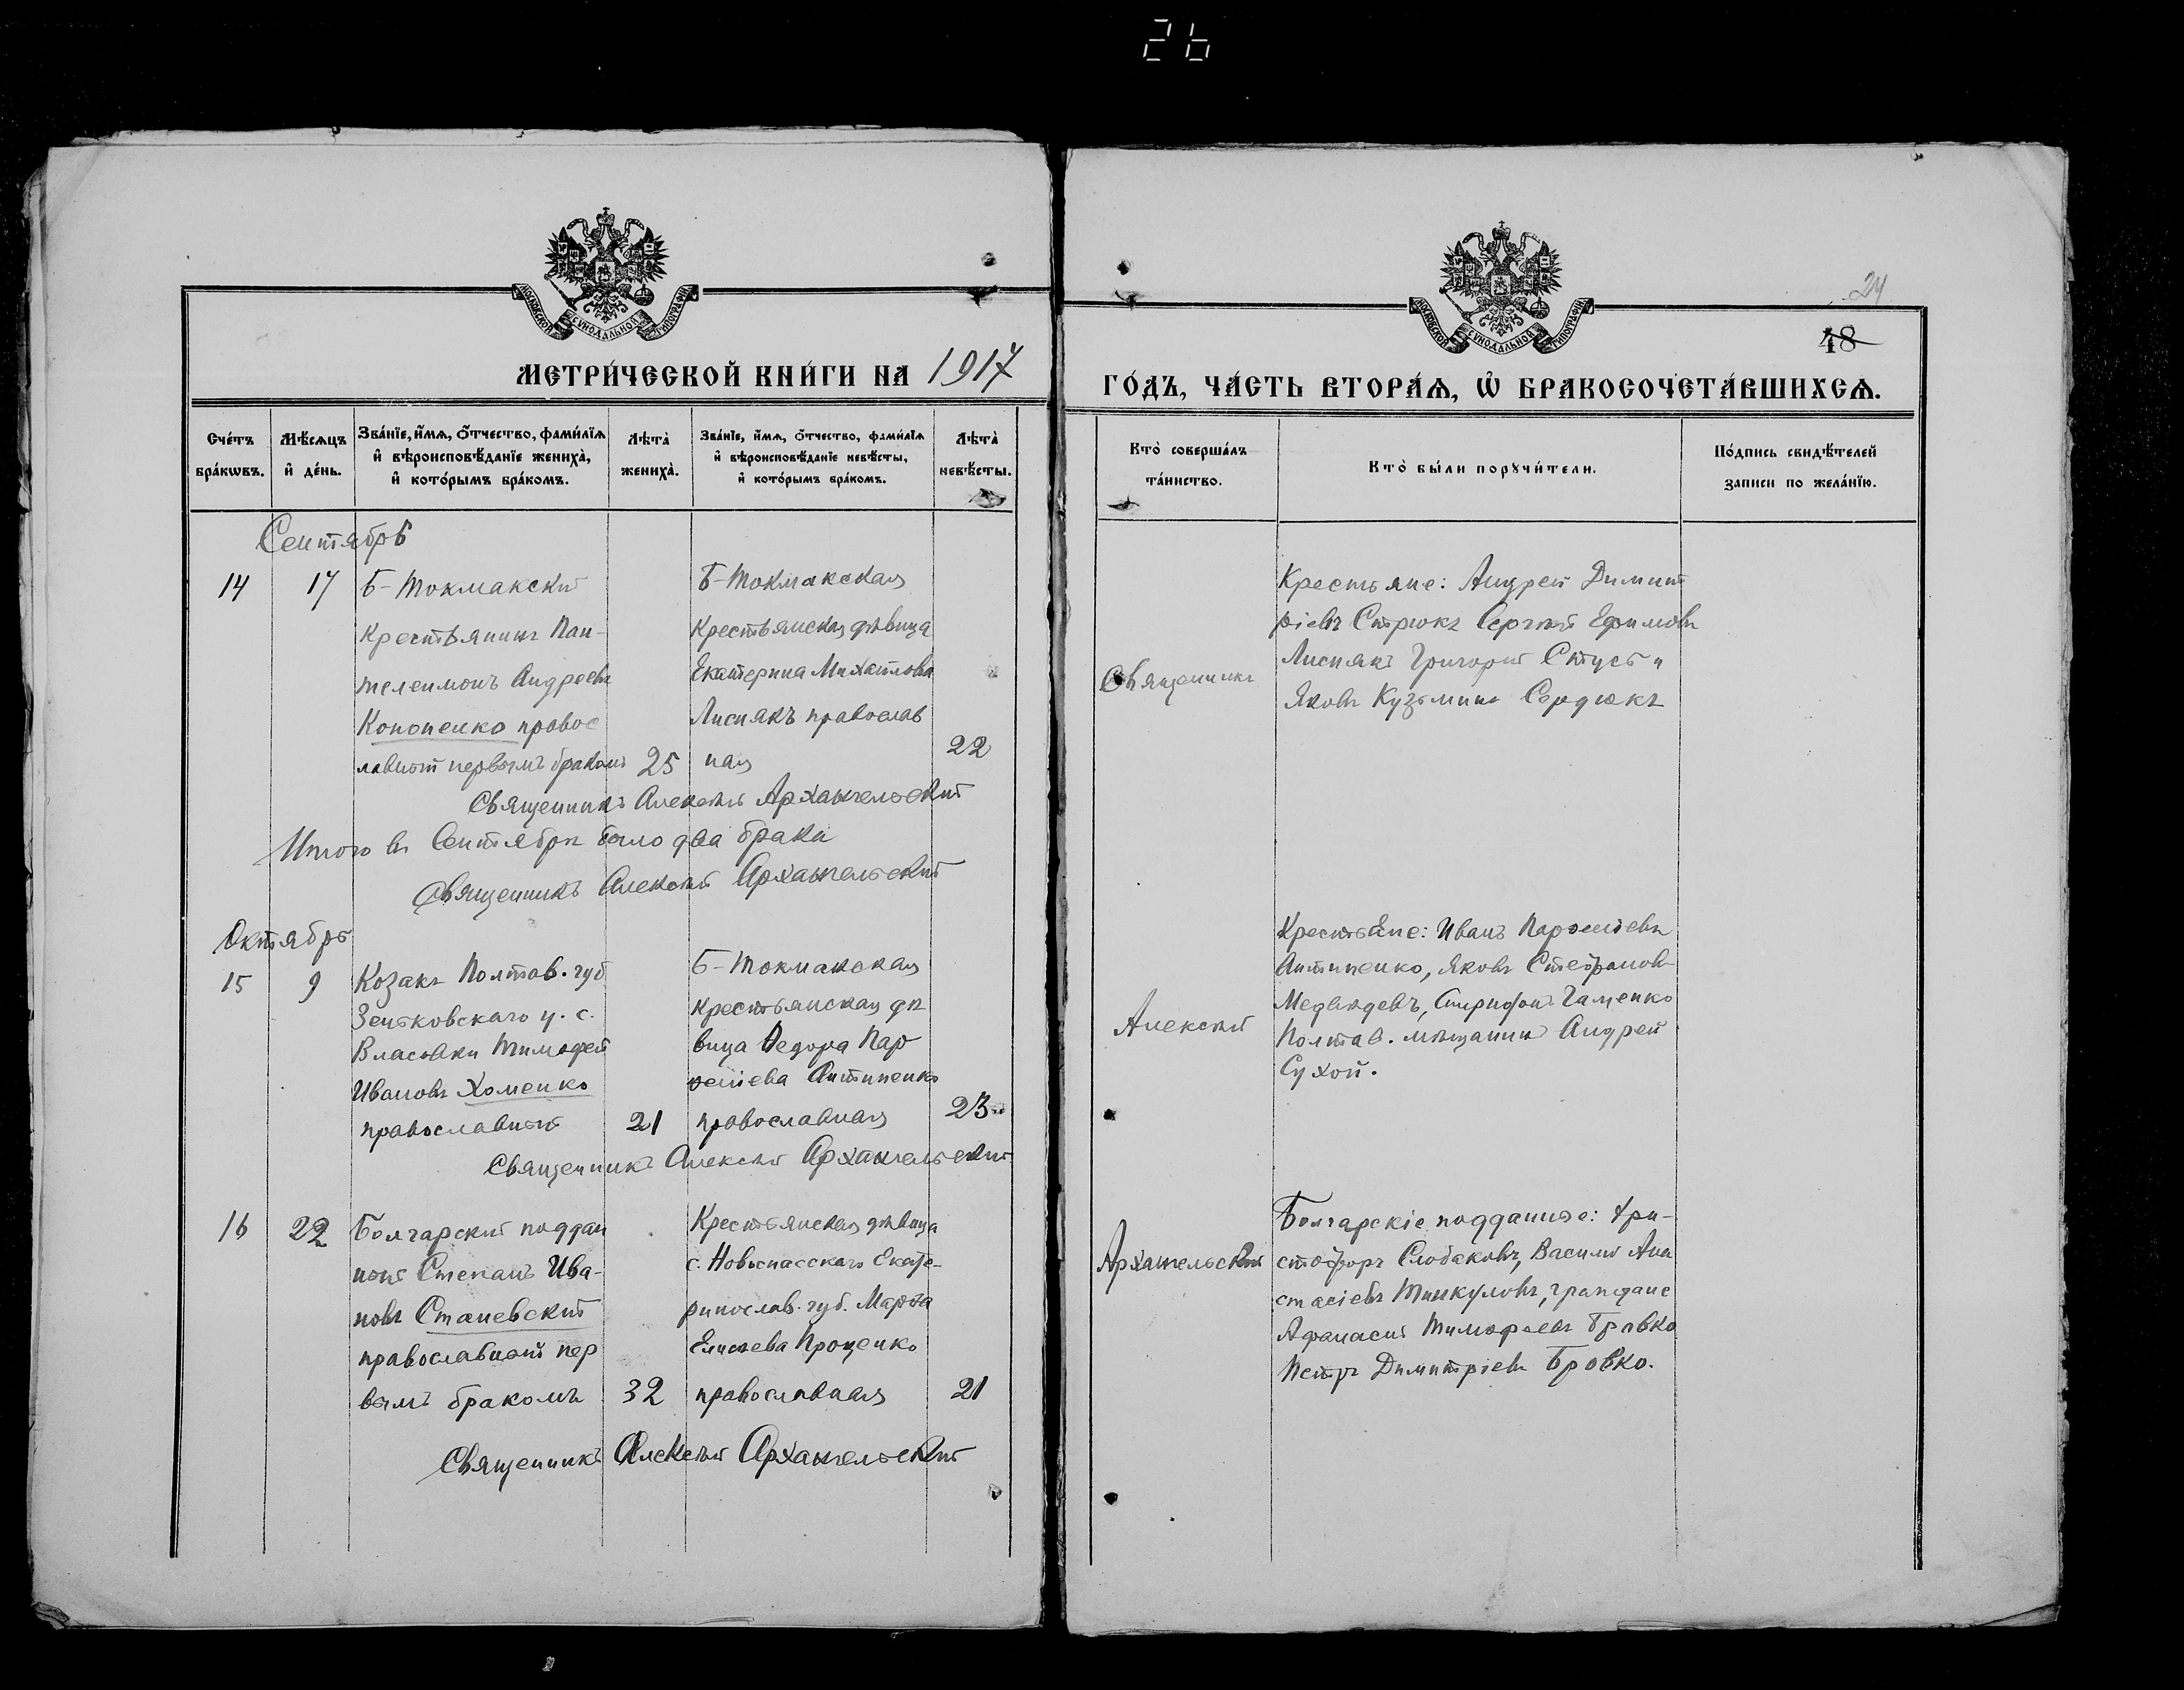 26
МОСКОВСКОЙ СѴНОДАЛЬНОЙ ТИПОГРАФІИ
МЕТРИ́ЧЕСКОЙ КНИ́ГИ НА 1917
Сче́тъ бра́кѡвъ.
Мѣ́сѧцъ и҆ де́нь.
Зва́нїе, и҆́мѧ, ѻ҆́тчество, фами́лїѧ и҆ вѣроисповѣ́данїе женихà, и҆ кото́рымъ бра́комъ.
Лѣ́та женихà.
Зва́нїе, и҆́мѧ, ѻ҆́тчество, фами́лїѧ и҆ вѣроисповѣ́данїе невѣ́сты, и҆ кото́рымъ бра́комъ.
Лѣ́та невѣ́сты.
Сентябрь
14
17
Б-Токмакскій
Крестьянинъ Пан-
телеимонъ Андреевъ
Кононенко правос
лавный первымъ бракомъ
25
Б-Токмакская
Крестьянская дѣвица
Екатерина Михайлова
Лиснякъ православ
ная
22
Священникъ Алексѣй Архангельскій
Итого въ Сентябрѣ было два брака
Священникъ Алексѣй Архангельскій
Октябрь
15
9
Козакъ Полтав. губ
Зеньковскаго у. с.
Власовки Тимофей
Ивановъ Хоменко
православный
21
Б-Токмакская
Крестьянская дѣ
вица Ѳедора Пар
ѳеніева Антипенко
православная
23
Священникъ Алексѣй Архангельскій
16
22
Болгарскій поддан
ный Степанъ Ива-
новъ Станевскій
православный пер
вымъ бракомъ
32
Крестьянская дѣвица
с. Новоспасскаго Екате-
ринослав. губ. Марѳа
Елисеева Проценко
православная
21
Священникъ Алексѣй Архангельскій
МОСКОВСКОЙ СѴНОДАЛЬНОЙ ТИПОГРАФІИ
24
48
ГО́ДЪ, ЧА́СТЬ ВТОРА́Ѧ, Ѡ҆ БРАКОСОЧЕТА́ВШИХСѦ.
Кто̀ соверша́лъ та́инство.
Кто̀ бы́ли порꙋчи́тели.
По́дпись свидѣ́телей записи по жела́нїю.
Священникъ
Крестьяне: Андрей Димит
ріевъ Стрюкъ Сергѣй Ефимовъ
Лиснякъ Григорій Стусь и
Яковъ Кузьминъ Сердюкъ
Алексѣй
Крестьяне: Иванъ Парѳеніевъ
Антипенко, Яковъ Стефановъ
Медвѣдевъ, Спиридонъ Гаменко
Полтав. мѣщанинъ Андрей
Сухой.
Архангельскій
Болгарскіе подданные: Хри-
стофоръ Слобаковъ, Василій Ана
стасіевъ Тинкуловъ, граждане
Афанасій Тимофеевъ Бровко
Петръ Димитріевъ Бровко.